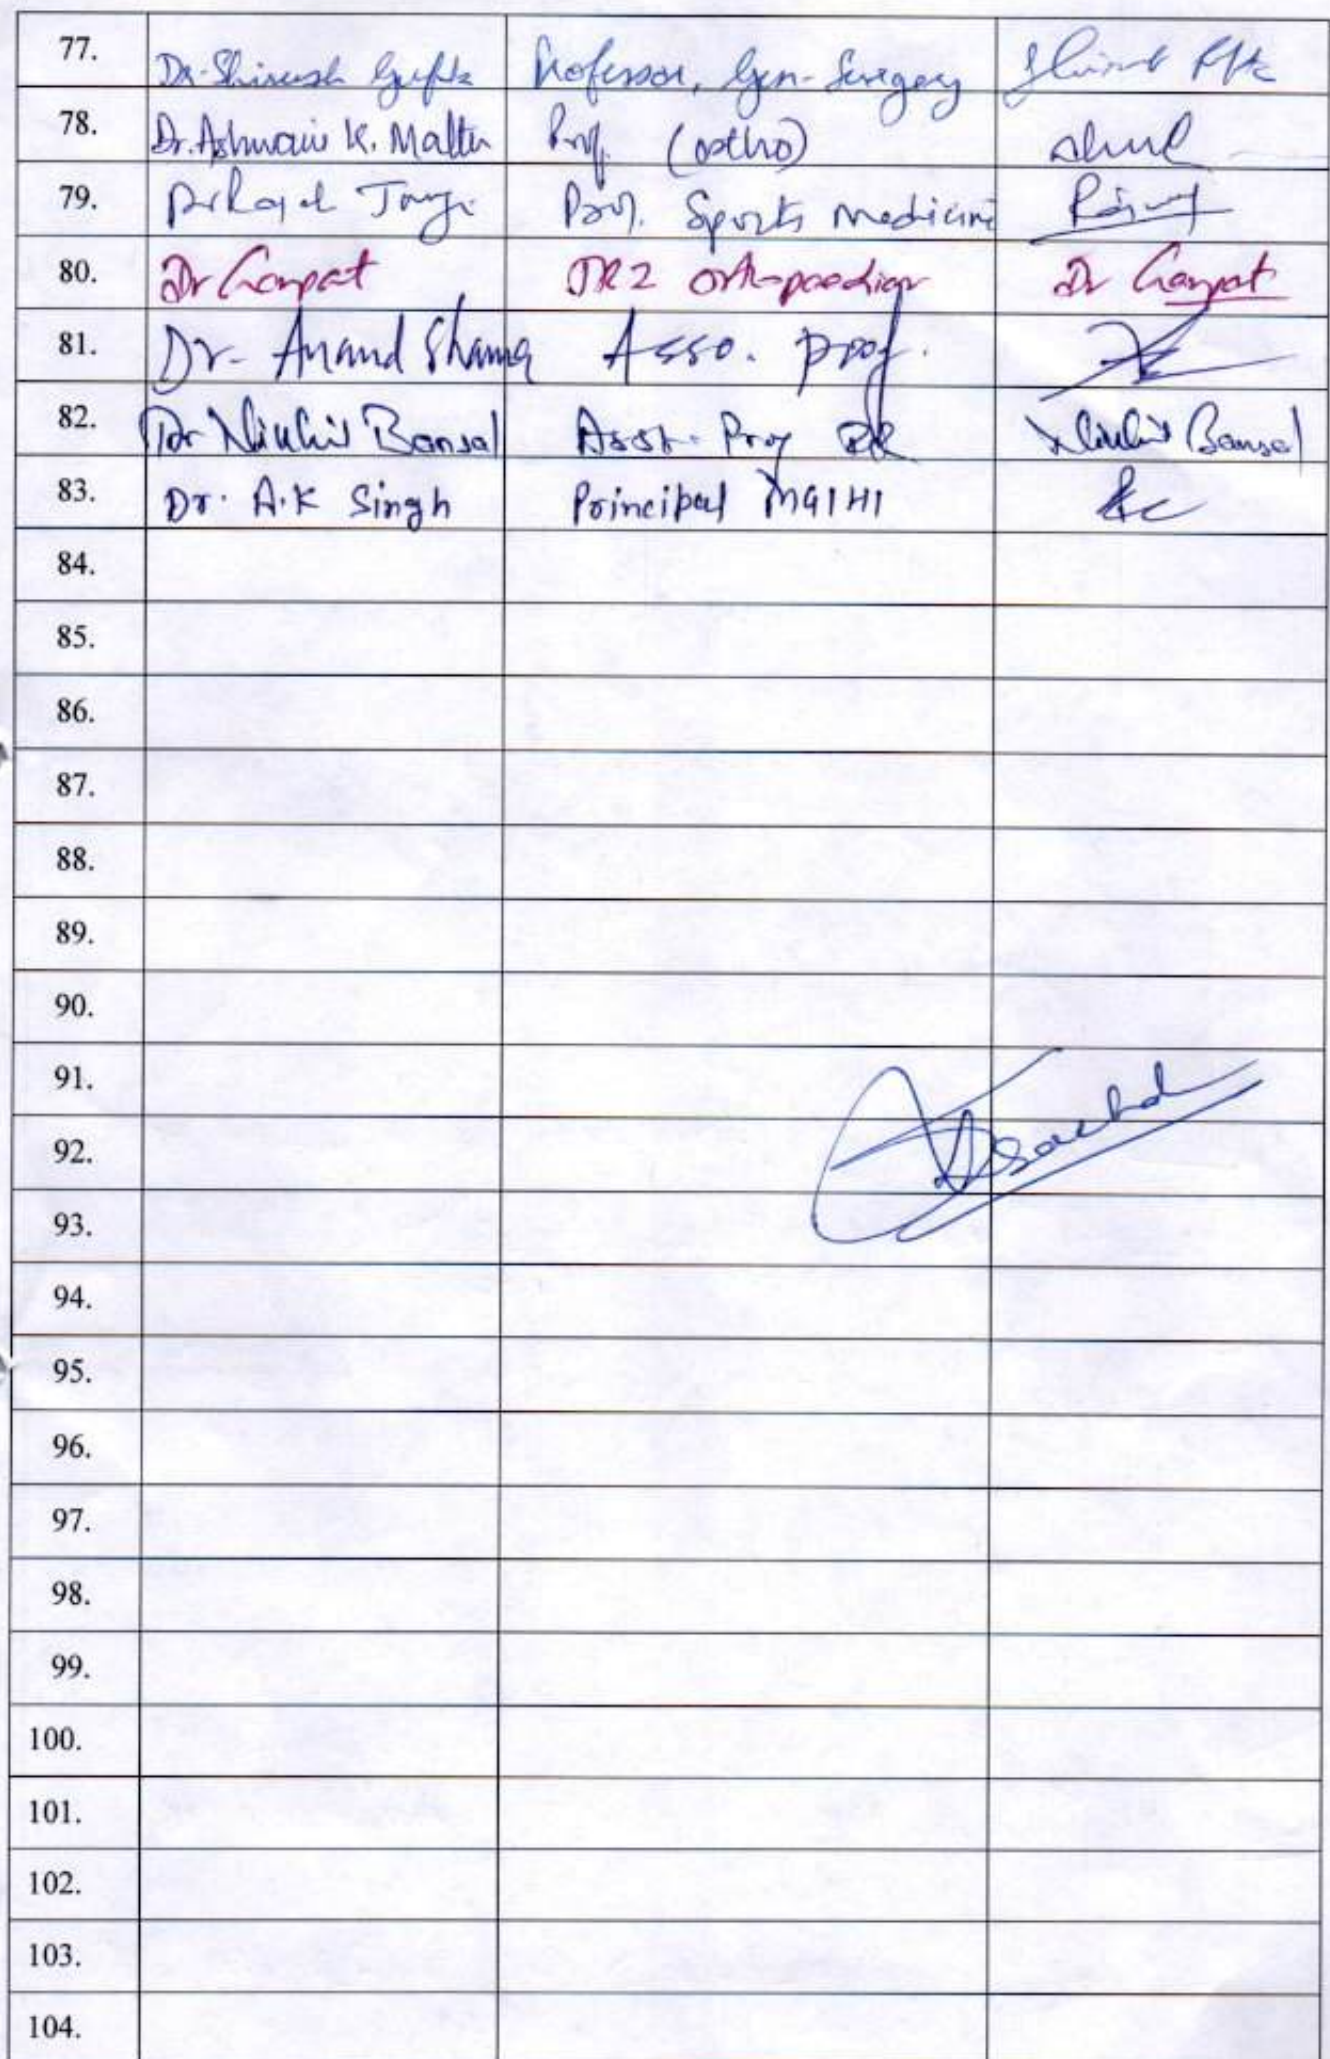 77. Dr. Shirish Gupta Professor, Gen-Surgery
78. Dr. Ashwani K. Prof. (ortho)
79. Dr Rajat Prof. Sports Medicine
80. Dr Ganpat JR2 Dr Ganpat
81. Dr. Anand Sharma Asso. prof.
82. Dr Bansal Asst. Prof Bansal
83. Dr. A.K Singh Principal MGIHI
84.
85.
86.
87.
88.
89.
90.
91.
92.
93.
94.
95.
96.
97.
98.
99.
100.
101.
102.
103.
104.